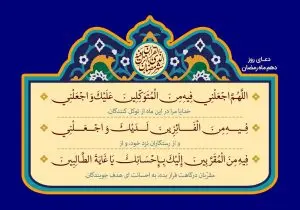 دعای روز
دهم ماه رمضان
اللَّهُمَّ اجْعَلْنِي فِيهِ مِنَ الْمُتَوَكِّلِينَ عَلَيْكَ وَاجْعَلْنِي
خدایا مرا در این ماه از توکل کنندگان،
فِيهِ مِنَ الْفَائِزِينَ لَدَيْكَ وَاجْعَلْنِي
و از رستگاران نزد خود، و از
فِيهِ مِنَ الْمُقَرَّبِينَ إِلَيْكَ بِإِحْسَانِكَ يَا غَايَةَ الطَّالِبِينَ
مقرّبان درگاهت قرار بده، به احسانت ای هدف جویندگان.